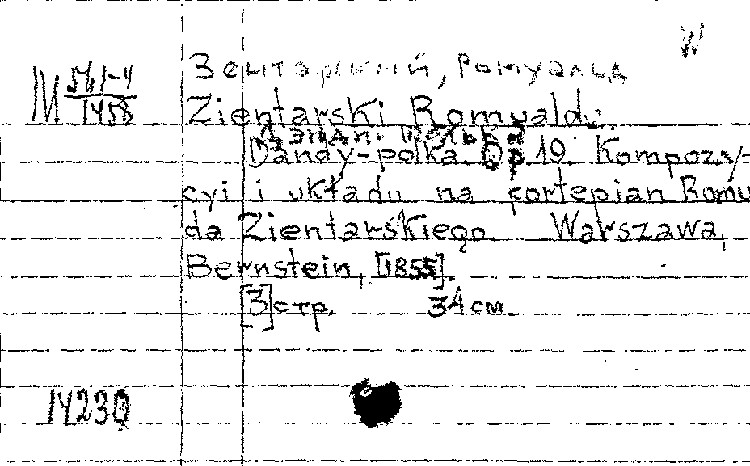 W
Зентарский, Ромуальд
М 561-4
1458
Zientarski Romuald.
Дэнди. полька
Dandy-polka Op 19. Kompozy-
cyi i układu na fortepian Romu
da Zientarskiego Warszawa,
Bernstein, [1855].
[3] стр. 34 см.
14230